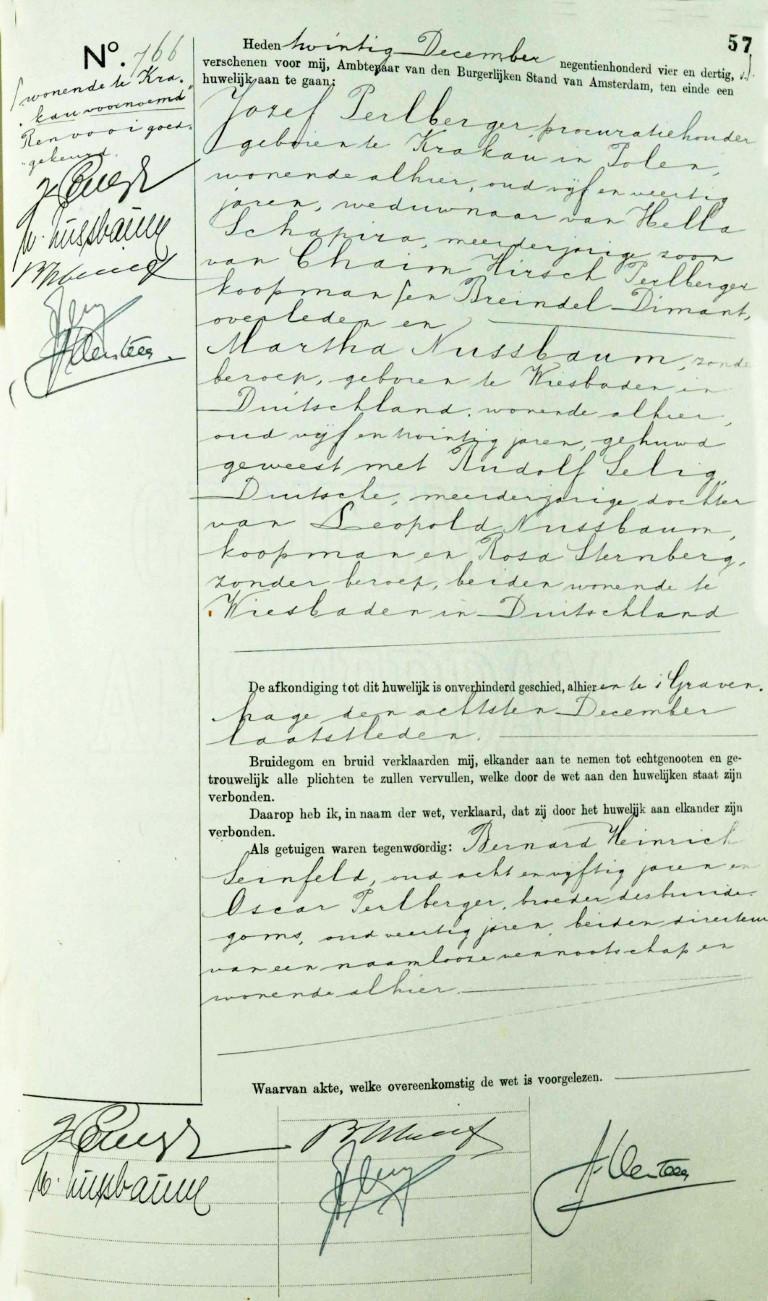 57
No. 766
wonende te Kra-
kau voornoemd"
Renvooi goed-
gekeurd.
M. Nussbaum
Heden twintig December negentienhonderd vier en dertig,
verschenen voor mij, Ambtenaar van den Burgerlijken Stand van Amsterdam, ten einde een
huwelijk aan te gaan:
Jozef Perlberger, procuratiehouder
geboren te Krakau in Polen,
wonende alhier, oud vijf en veertig
jaren, weduwnaar van Hella
Schapira, meerderjarige zoon
van Chaim Hirsch Perlberger
koopman ⌈en Breindel Dimant,
overleden en
Martha Nussbaum, zonder
beroep, geboren te Wiesbaden in
Duitschland, wonende alhier,
oud vijf en twintig jaren, gehuwd
geweest met Rudolf Selig,
Duitsche, meerderjarige dochter
van Leopold Nussbaum,
koopman en Rosa Sternberg,
zonder beroep, beiden wonende te
Wiesbaden in Duitschland
De afkondiging tot dit huwelijk is onverhinderd geschied, alhier en te 's Graven-
hage den achtsten December
laatstleden.
Bruidegom en bruid verklaarden mij, elkander aan te nemen tot echtgenooten en ge-
trouwelijk alle plichten te zullen vervullen, welke door de wet aan den huwelijken staat zijn
verbonden.
Daarop heb ik, in naam der wet, verklaard, dat zij door het huwelijk aan elkander zijn
verbonden.
Als getuigen waren tegenwoordig: Bernard Heinrich
Seinfeld, oud acht en vijftig jaren en
Oscar Perlberger, broeder des bruide-
goms, oud veertig jaren, beiden directeur
van een naamlooze vennootschap en
wonende alhier.
Waarvan akte, welke overeenkomstig de wet is voorgelezen.
M. Nussbaum